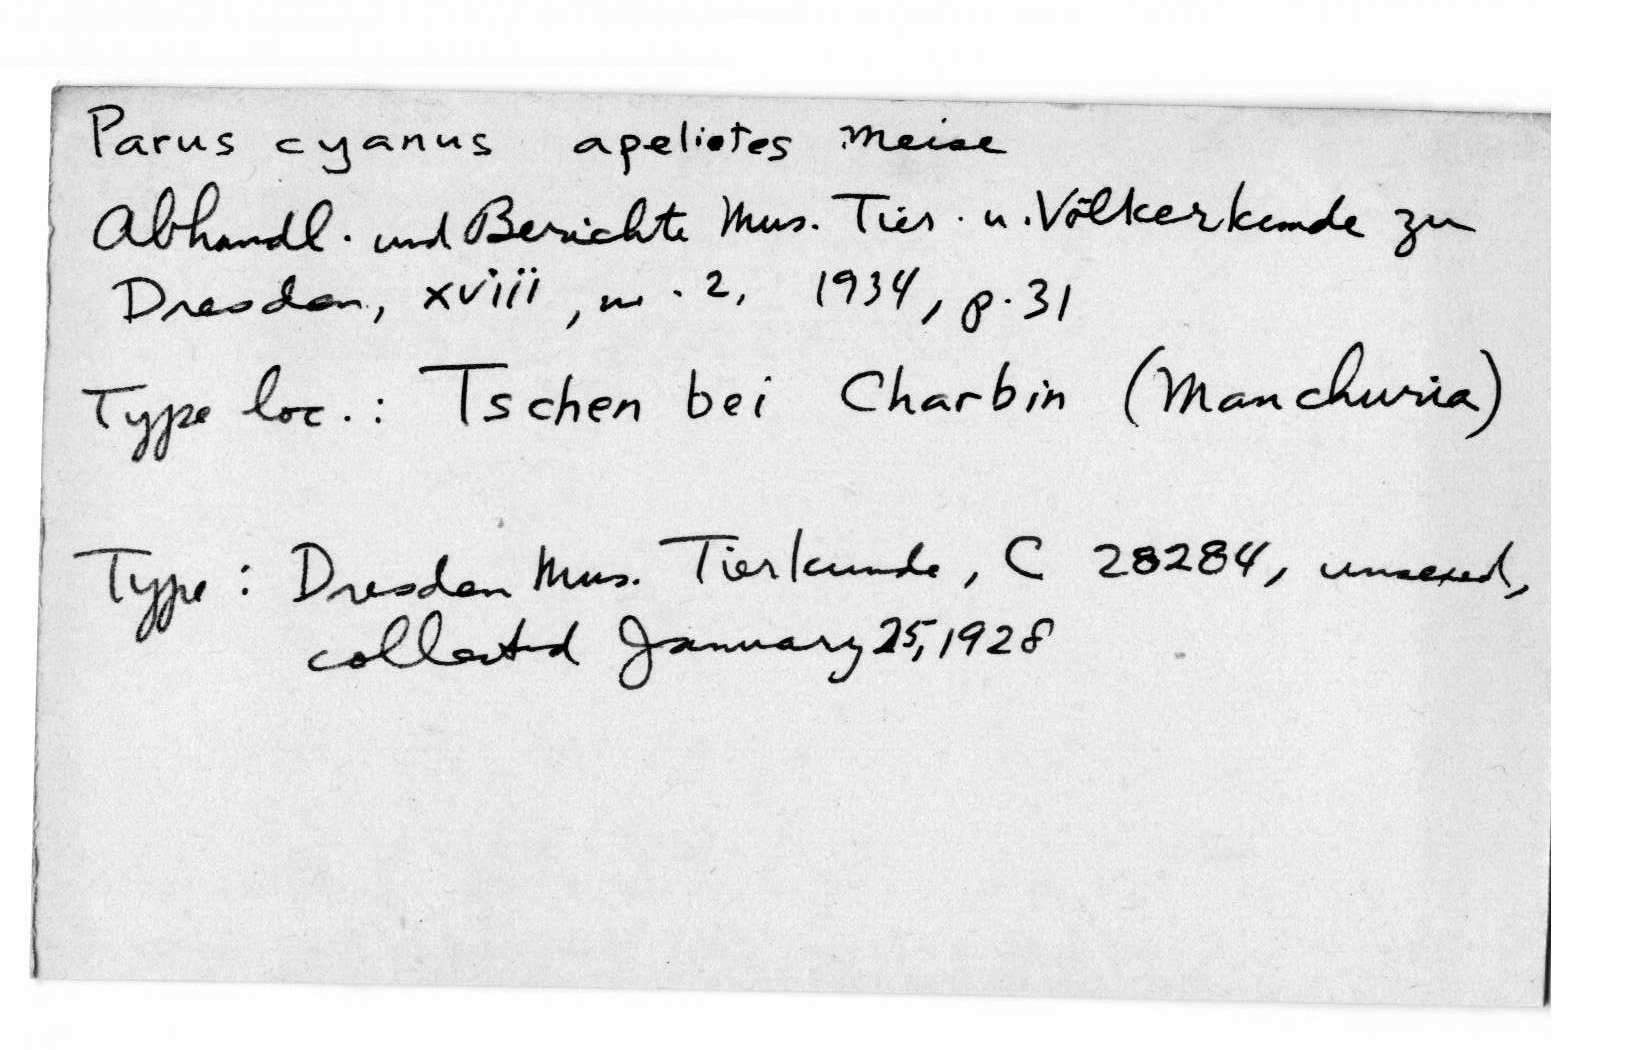 Parus cyanus apeliotes Meise
Abhandl. und Berichte Mus. Tier. u. Völkerkunde zu
Dresden, xviii, no. 2, 1934, p. 31
Type loc.: Tschen bei Charbin (Manchuria)
Type: Dresden Mus. Tierkunde, C 28284, unsexed,
collected January 25, 1928